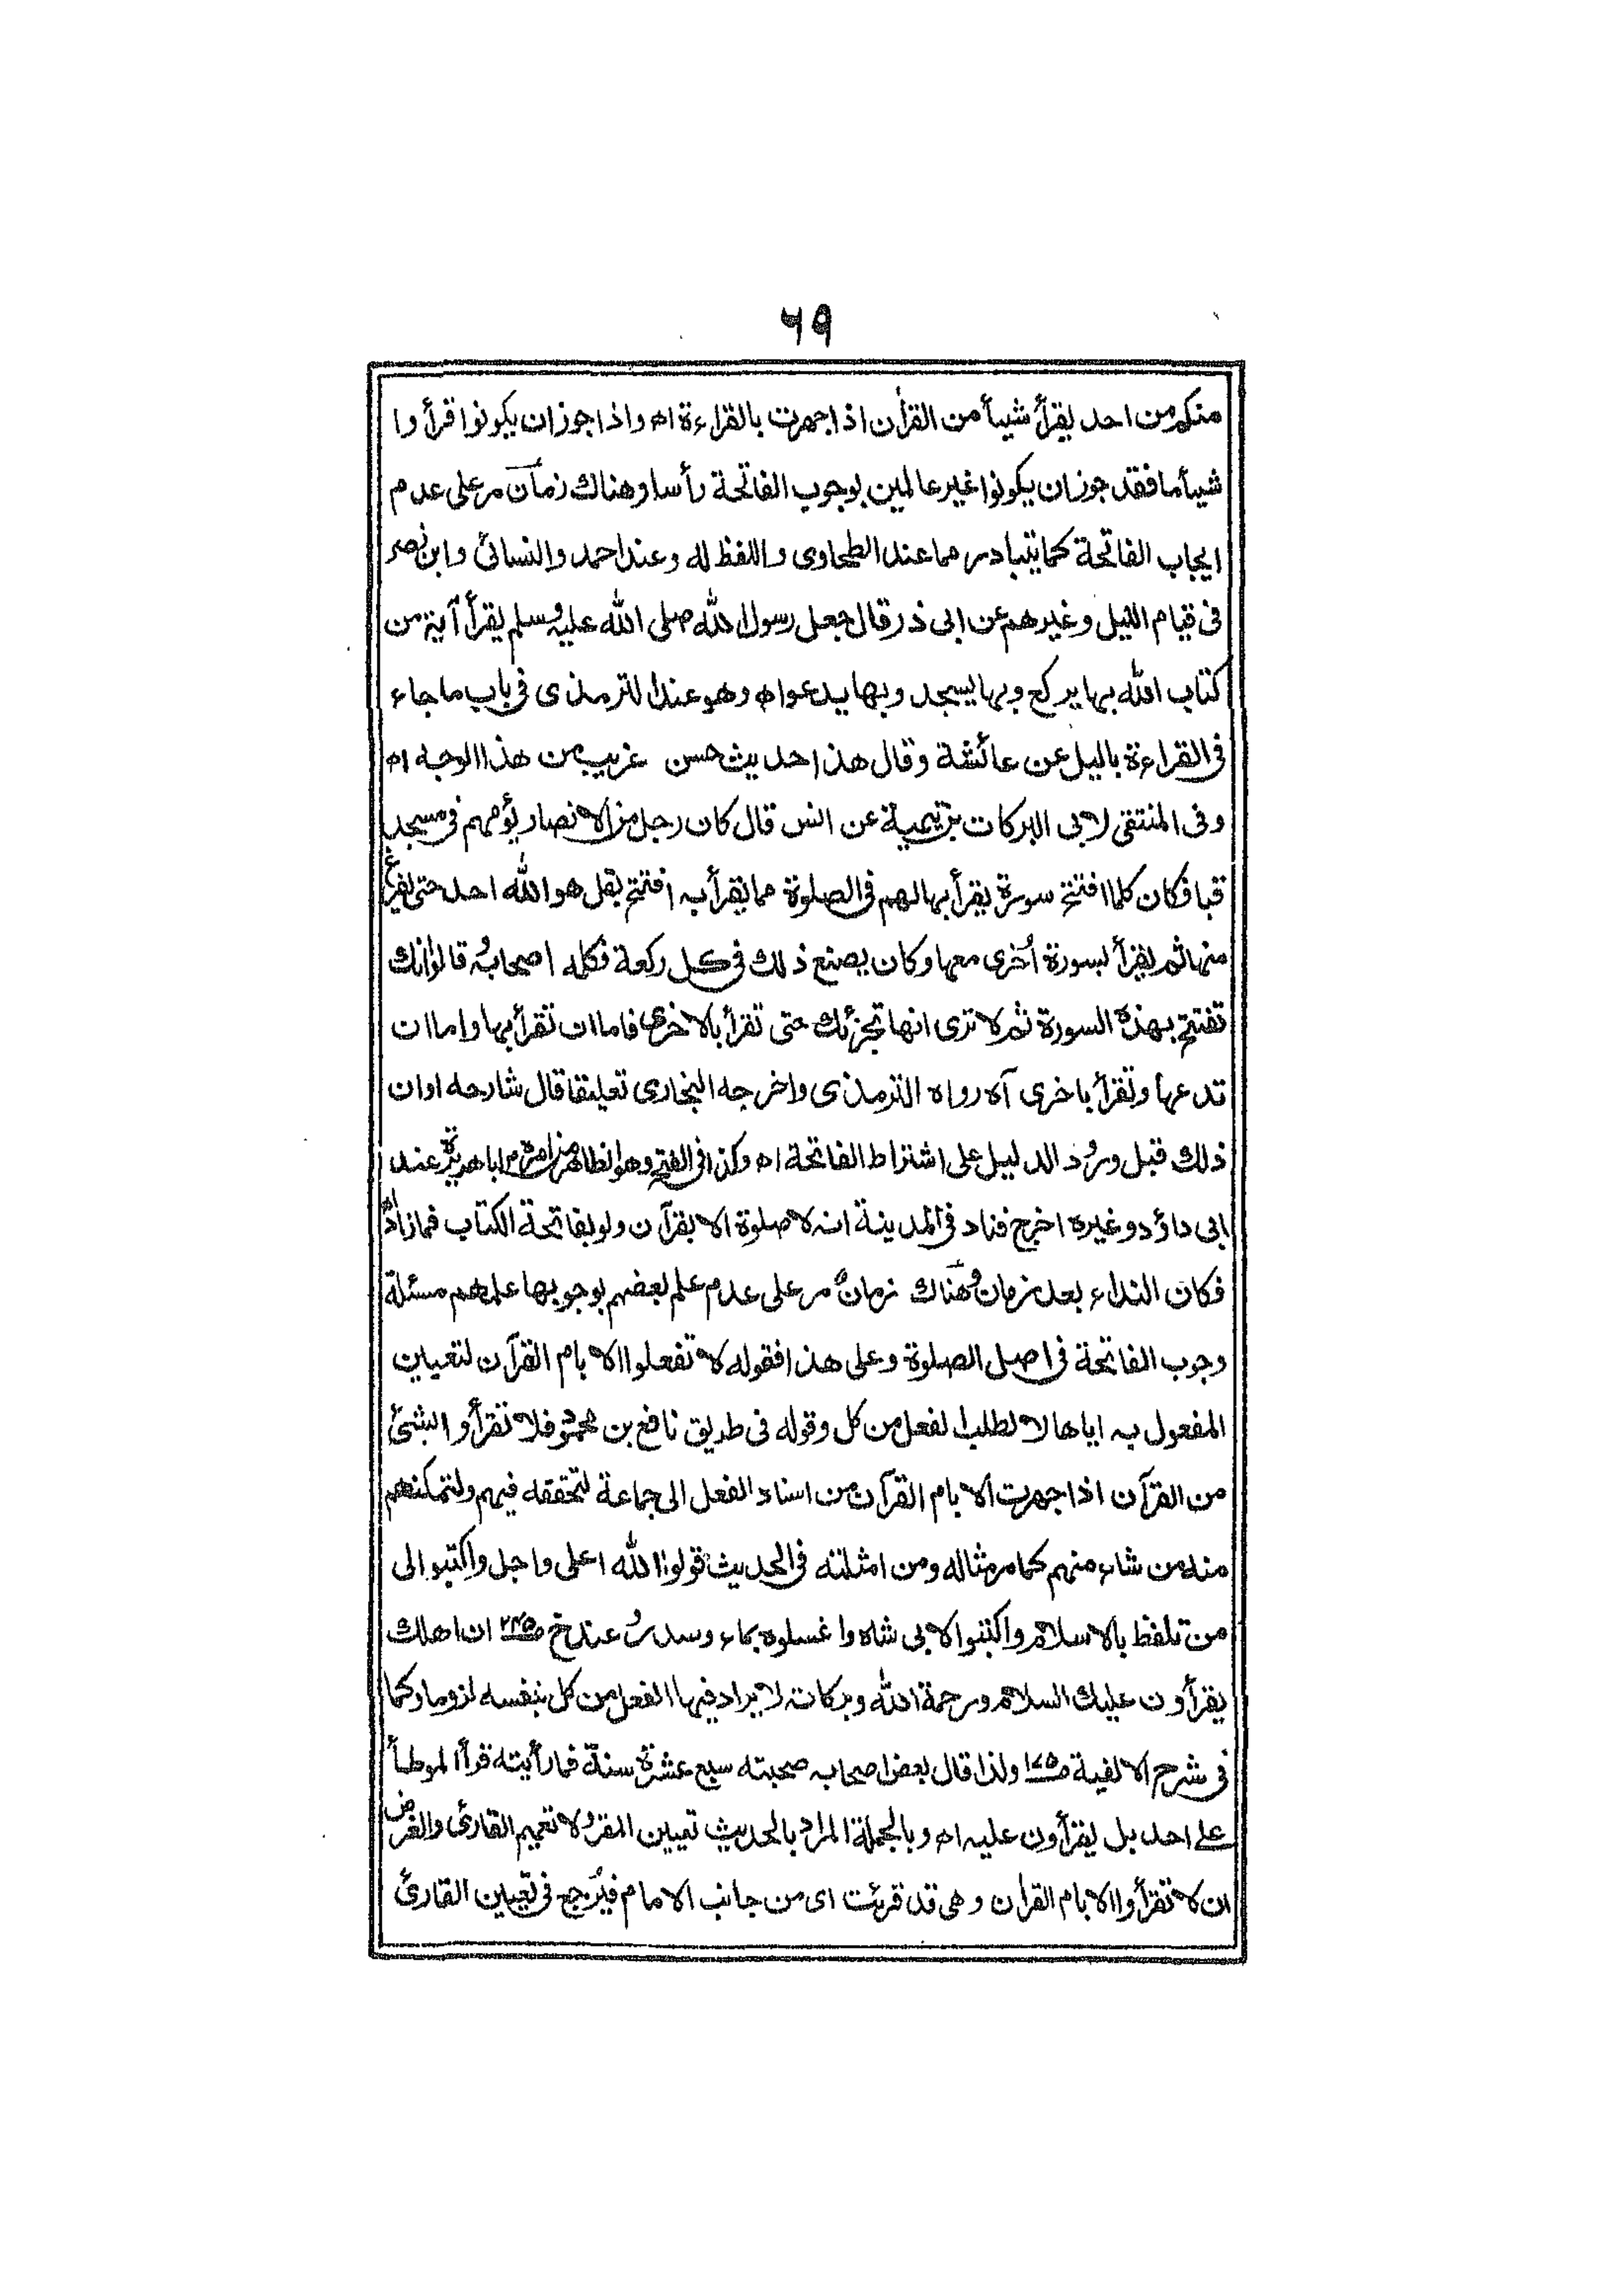 ٦٩
منكم من احد يقرأ شيئا من القرأن اذا جهرت بالقراءة اه واذا جوزان يكونوا قرأوا
شيأ ما فقد جوزان يكونوا غير عالمين بوجوب الفاتحة رأسا وهناك زمان مر على عدم
ايجاب الفاتحة كما يتبادر مما عند الطحاوى واللفظ له وعند احمد والنسائى وابن نصر
فى قيام الليل وغيرهم عن ابى ذر قال جعل رسول الله صلى الله عليه وسلم يقرأ آية من
كتاب الله بها يركع وبها يسجد وبها يدعواه وهو عند الترمذى فى باب ما جاء
فى القراءة بالليل عن عائشة وقال هذا حديث حسن غريب من هذا الوجه اه
وفى المنتقى لابى البركات بن تيمية عن انس قال كان رجل من الانصار يؤمهم فى مسجد
قبا فكان كلما افتتح سورة يقرأ بها لهم فى الصلوة مما يقرأ به افتتح بقل هو الله احد حتى يفرغ
منها ثم يقرأ بسورة أخرى معها وكان يصنع ذلك فى كل ركعة فكلمه اصحابه قالوا انك
تفتتح بهذه السورة ثم لا ترى انها تجزئك حتى تقرأ بالاخرى فاما ان تقرأ بها واما ان
تدعها وتقرأ باخرى آه رواه الترمذى واخرجه البخارى تعليقا قال شارحه اوان
ذلك قبل ورود الدليل على اشتراط الفاتحة اه وكذا فى الفتح وهو الظاهر من امره م اباهريرة عند
ابى داؤد وغيره اخرج فناد فى المدينة انه لا صلوة الا بقرآن ولو بفاتحة الكتاب فمازاد اه
فكان النداء بعد زمان وهناك زمان مر على عدم علم بعضهم بوجوبها علمهم مسئلة
وجوب الفاتحة فى اصل الصلوة وعلى هذا فقوله لا تفعلوا الا بام القرآن لتعيين
المفعول به اياها لا لطلب الفعل من كل وقوله فى طريق نافع بن محمود فلا تقرأوا بشئ
من القرآن اذا جهرت الا بام القرآن من اسناد الفعل الى جماعة لتحققه فيهم ولتمكنهم
منه من شاء منهم كما مر مثاله ومن امثلته فى الحديث قولوا الله اعلى واجل واكتبوا لى
من تلفظ بالاسلام واكتبوا لابى شاه واغسلوه بماء وسدر عند خ ان اهلك
يقرأون عليك السلام ورحمة الله وبركاته لا يراد فيها الفعل من كل بنفسه لزوما وكما
فى شرح الالفية ص١٧٥ ولذا قال بعض اصحابه صحبته سبع عشرة سنة فما رأيته قرأ الموطأ
على احد بل يقرأون عليه اه وبالجملة المراد بالحديث تعيين المقرو لا تعميم القارئ والغرض
ان لا تقرأوا الا بام القران وهى قد قرئت اى من جانب الامام فيرجع فى تعيين القارئ